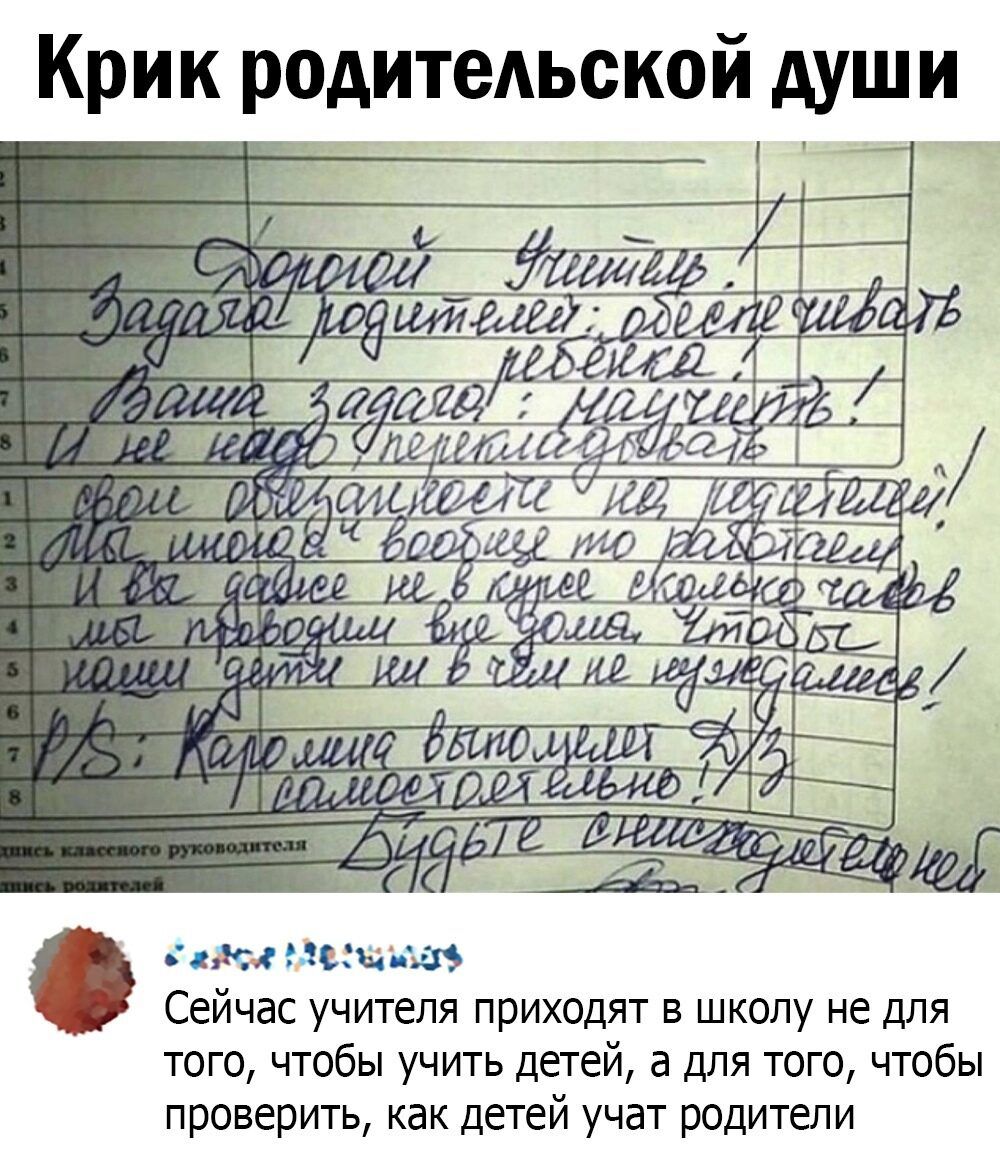 Крик родительской души
2
3
4
5
6
7
8
Дорогой Учитель!
Задача родителей: обеспечивать
ребёнка!
Ваша задача: научить!
И не надо перекладовать
свои обязанности на родителей!
Мы иногда вообще то работаем
И вы даже не в курсе сколько часов
мы проводим вне дома, чтобы
наши дети ни в чём не нуждались!
P/S: Каролина выполняет Д/З
самостоятельно!
Будьте снисходительней
1
2
3
4
5
6
7
8
дпись классного руководителя
дпись родителей
Сейчас учителя приходят в школу не для
того, чтобы учить детей, а для того, чтобы
проверить, как детей учат родители